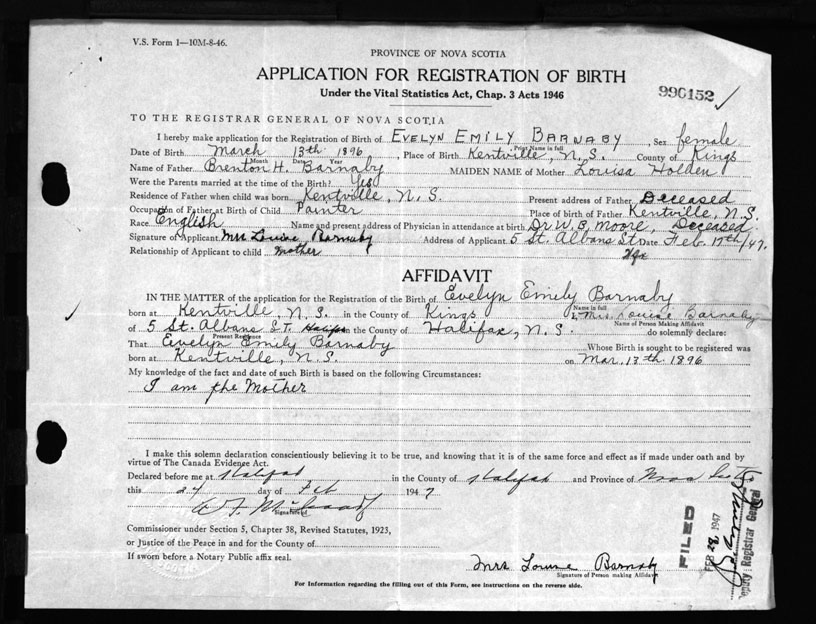 V.S. Form 1—10M-8-46.
PROVINCE OF NOVA SCOTIA
APPLICATION FOR REGISTRATION OF BIRTH
Under the Vital Statistics Act, Chap. 3 Acts 1946
990152
TO THE REGISTRAR GENERAL OF NOVA SCOTIA
I hereby make application for the Registration of Birth of EVELYN EMILY BARNABY, Sex female
Print Name in full
Date of Birth March 13th 1896, Place of Birth Kentville, N.S. County of Kings
Month Date Year
Name of Father Brenton H. Barnaby MAIDEN NAME of Mother Louisa Holden
Were the Parents married at the time of the Birth? Yes
Residence of Father when child was born Kentville, N.S. Present address of Father Deceased
Occupation of Father at Birth of Child Painter Place of birth of Father Kentville, N.S.
Race English Name and present address of Physician in attendance at birth Dr W. B. Moore, Deceased
Signature of Applicant Mrs Louise Barnaby Address of Applicant 5 St. Albans St Date Feb. 17th/47.
Hfx
Relationship of Applicant to child mother
AFFIDAVIT
IN THE MATTER of the application for the Registration of the Birth of Evelyn Emily Barnaby
Name in full
born at Kentville, N.S. in the County of Kings I, Mrs. Louise Barnaby
Name of Person Making Affidavit
of 5 St. Albans ST. Halifax in the County of Halifax, N.S. do solemnly declare:
Present Residence
That Evelyn Emily Barnaby Whose Birth is sought to be registered was
born at Kentville, N.S. on Mar. 13th. 1896
My knowledge of the fact and date of such Birth is based on the following Circumstances:
I am the Mother
I make this solemn declaration conscientiously believing it to be true, and knowing that it is of the same force and effect as if made under oath and by
virtue of The Canada Evidence Act.
Declared before me at Halifax in the County of Halifax and Province of Nova Scotia
this 24 day of Feb 1947
Signature of
Commissioner under Section 5, Chapter 38, Revised Statutes, 1923,
or Justice of the Peace in and for the County of
If sworn before a Notary Public affix seal.
Mrs Louise Barnaby
Signature of Person making Affidavit
For Information regarding the filling out of this Form, see instructions on the reverse side.
FILED
FEB 28 1947
Deputy Registrar General